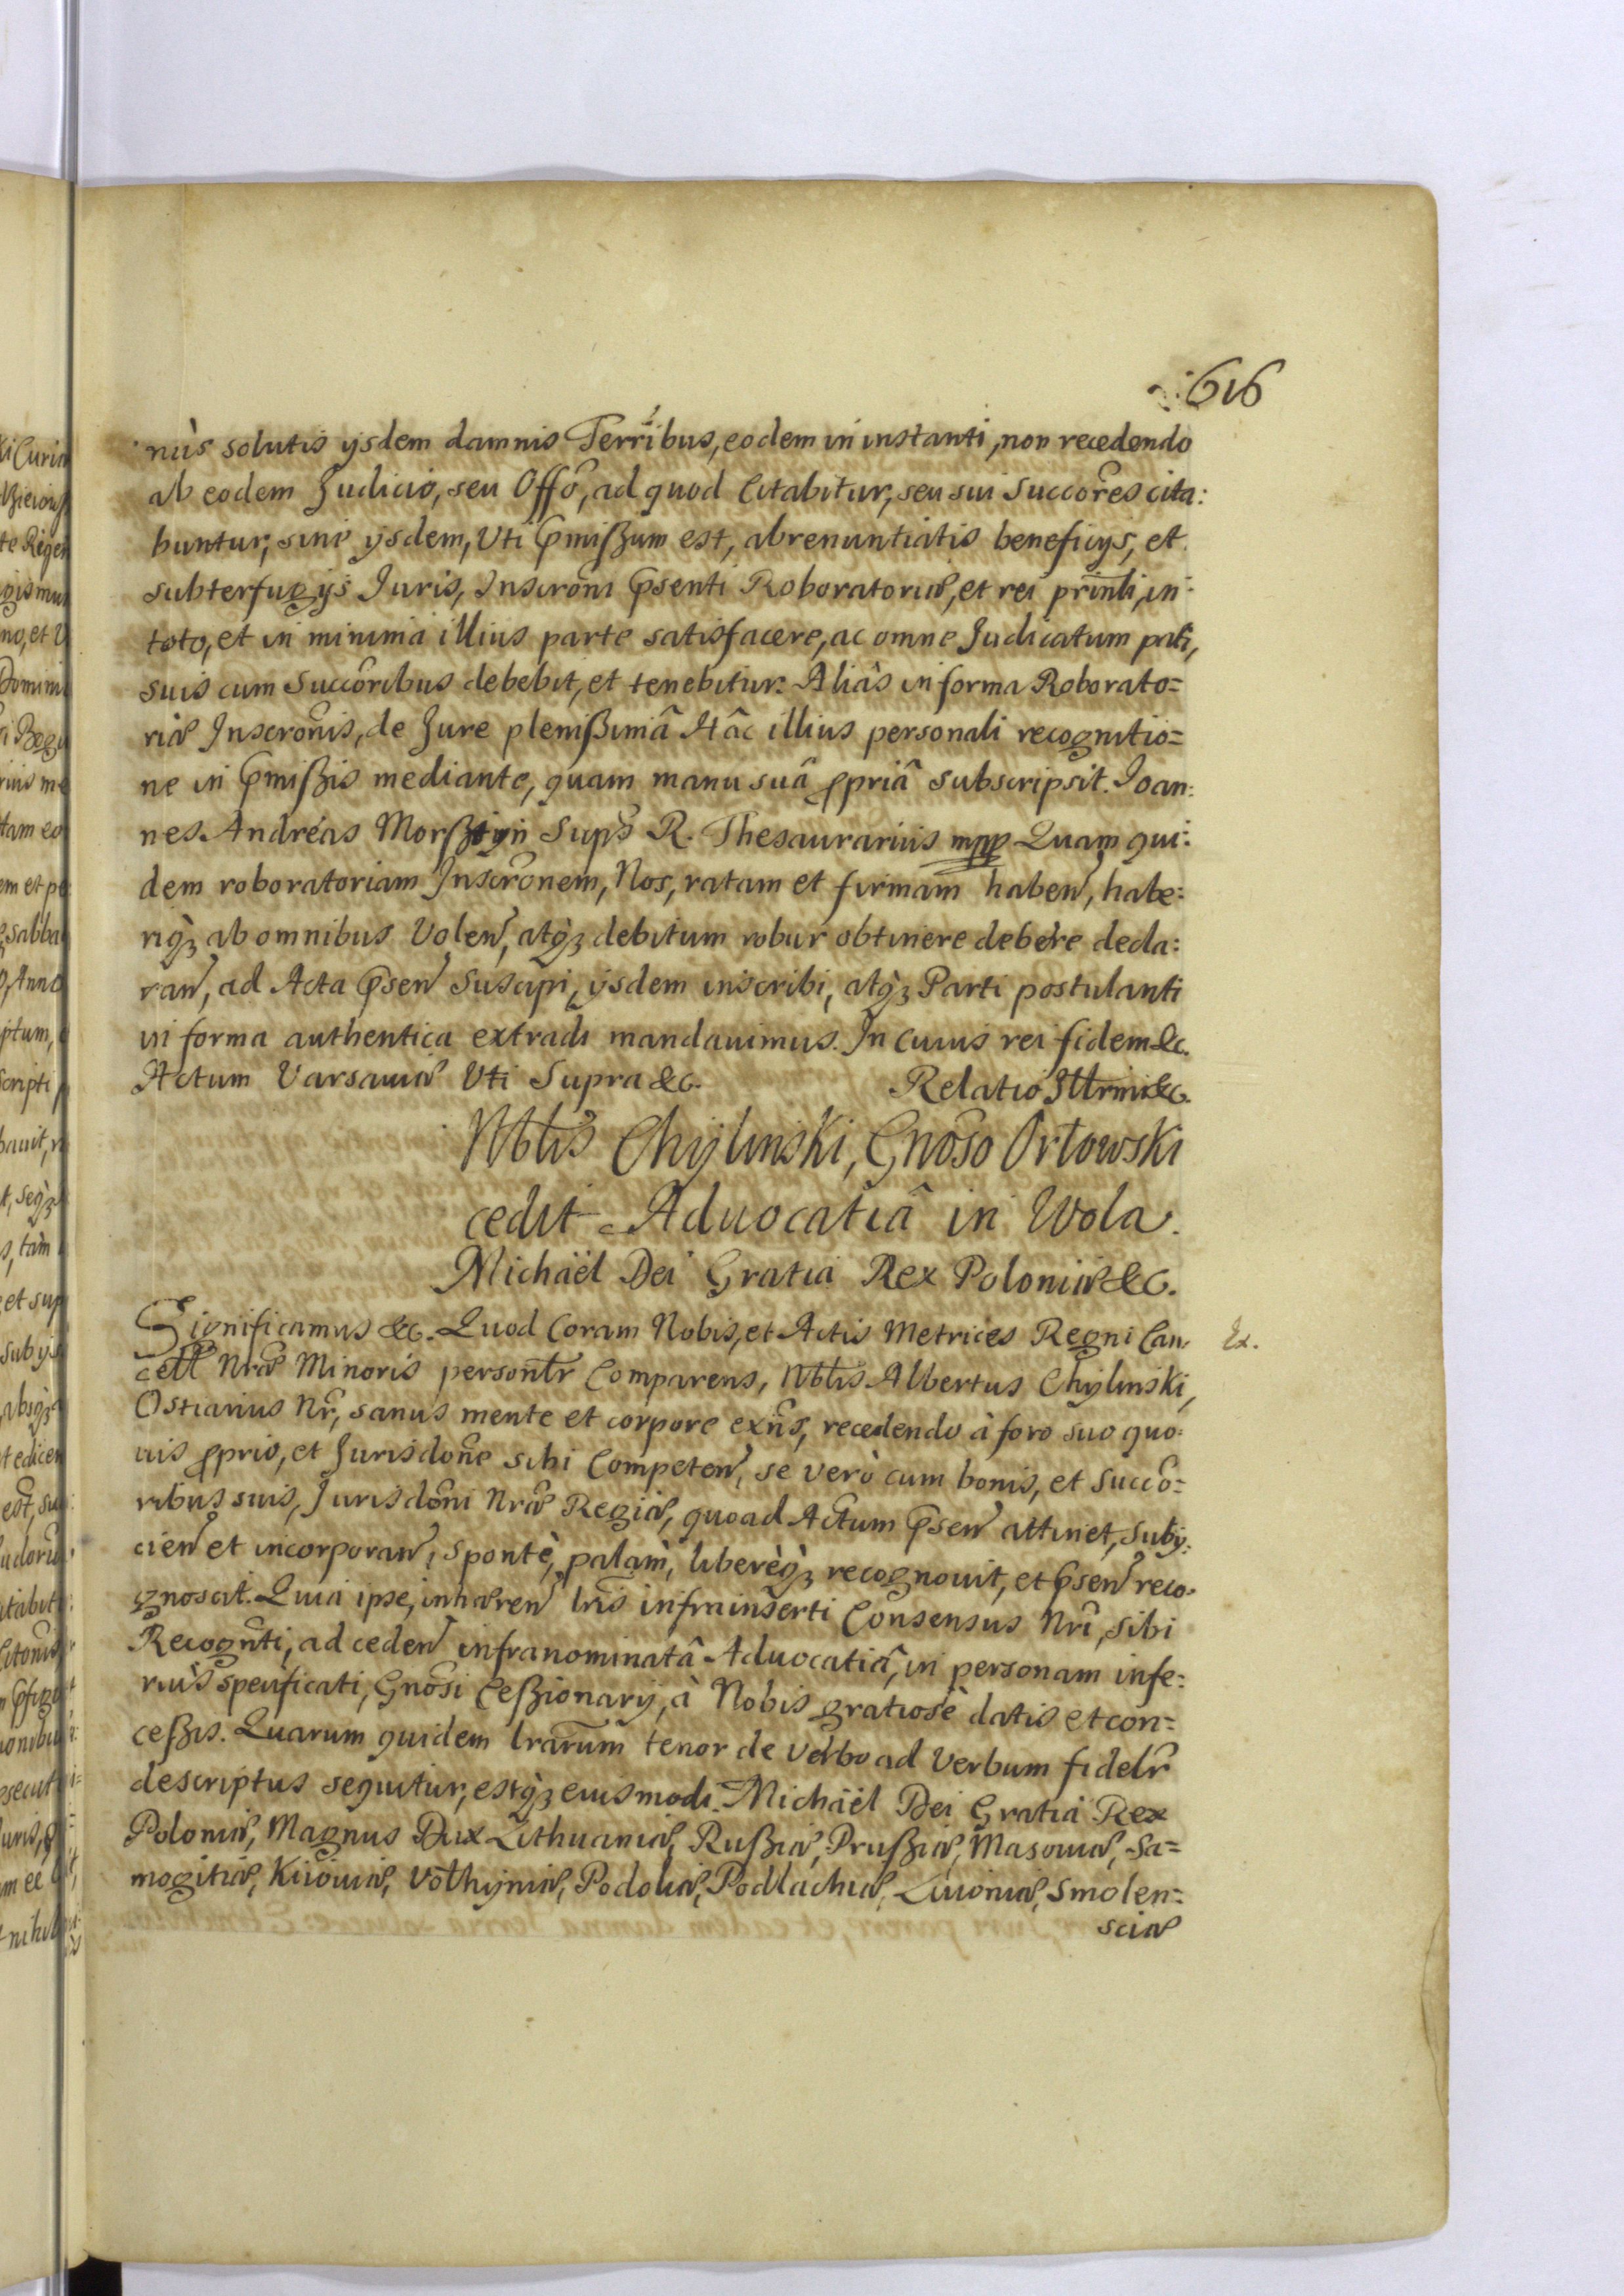 616
niis solutis ijsdem damnis Terribus, eodem in instanti, non recedendo
ab eodem Judicio, seu Offo, ad quod Citabitur, seu sui Succores cita:
buntur, sine ijsdem, Uti pmißum est, abrenuntiatis beneficijs, et
subterfugijs Juris, Inscroni psenti Roboratoriæ, et rei prinli, in
toto, et in minima illius parte satisfacere, ac omne Judicatum pati,
suis cum Succoribus debebit, et tenebitur. Aliàs in forma Roborato=
riæ Inscronis, de Jure plenißimâ Hâc illius personali recognitio=
ne in pmißis mediante, quam manu suâ ppriâ subscripsit. Joan:
nes Andreas Morßtyn Sups R. Thesaurarius mpp Quam qui:
dem roboratoriam Inscronem, Nos, ratam et firmam haben, habe:
riq3 ab omnibus Volen, atq3 debitum robur obtinere debere decla:
ran, ad Acta psen Suscipi, ijsdem inscribi, atq3 Parti postulanti
in forma authentica extradi mandauimus. In Cuius rei fidem &c.
Actum Varsauiæ Uti Supra &c. Relatio Illrmi &c.
Nblis Chylinski, Gnoso Orłowski
cedit Aduocatiâ in Wola.
Michaël Dei Gratia Rex Poloniæ &c.
Significamus &c. Quod Coram Nobis, et Actis Metrices Regni Can: Ex.
cell Nræ Minoris personlr Comparens, Nblis Albertus Chylinski,
Ostiarius Nr, sanus mente et corpore exns, recedendo à foro suo quo:
uis pprio, et Jurisdone sibi Competen, se verò cum bonis, et Succo=
ribus suis, Jurisdoni Nræ Regiæ, quoad Actum psen attinet, Subij:
cien et incorporan, Spontè, palam, liberèq3 recognouit, et psen reco:
gnoscit. Quia ipse, inhæren lris infrainserti Consensus Nri, sibi
Recognti, ad ceden infranominatâ Aduocatiâ, in personam infe:
rius specificati, Gnosi Ceßionarij, à Nobis gratiosè datis et con=
ceßis. Quarum quidem lrarum tenor de Verbo ad Verbum fidelr
descriptus sequitur, estq3 eiusmodi. Michaël Dei Gratia Rex
Poloniæ, Magnus Dux Lithuaniæ, Rußiæ, Prußiæ, Masouiæ, Sa=
mogitiæ, Kiiouiæ, Volhyniæ, Podoliæ, Podlachiæ, Liuoniæ, Smolen=
sciæ